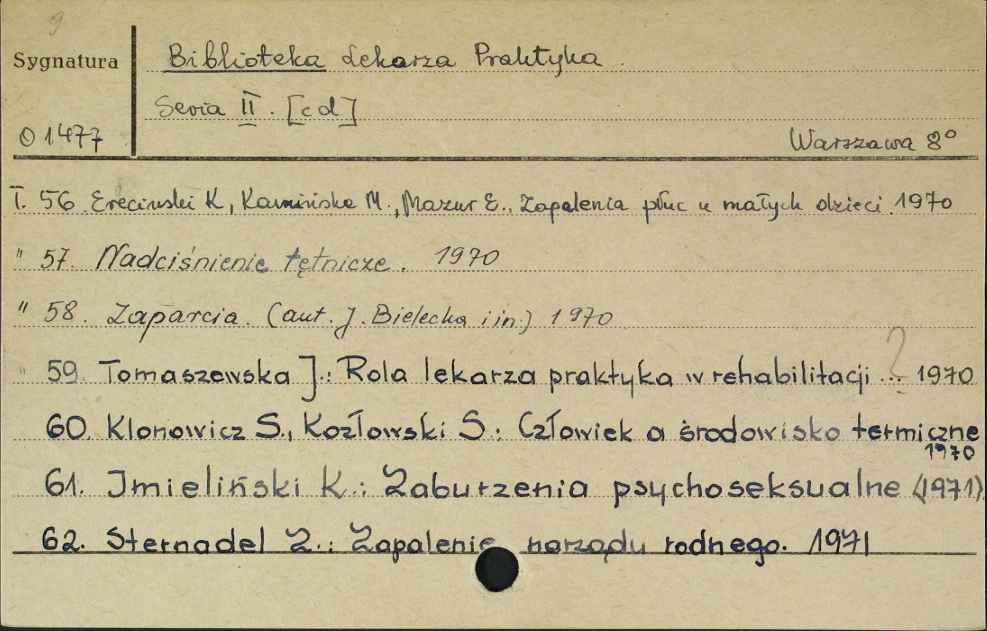 9
Sygnatura
Biblioteka Lekarza Praktyka.
Seria II. [cd]
O 1477
Warszawa 8°
T. 56. Ereciński K., Kamińska M., Mazur E., Zapalenia płuc u małych dzieci. 1970
" 57. Nadciśnienie tętnicze. 1970
" 58. Zaparcia. (aut. J. Bielecka i in.) 1970
" 59. Tomaszewska J.: Rola lekarza praktyka w rehabilitacji ... ? 1970
60. Klonowicz S., Kozłowski S.: Człowiek a środowisko termiczne
1970
61. Imieliński K.: Zaburzenia psychoseksualne (1971)
62. Sternadel Z.: Zapalenie narządu rodnego. 1971